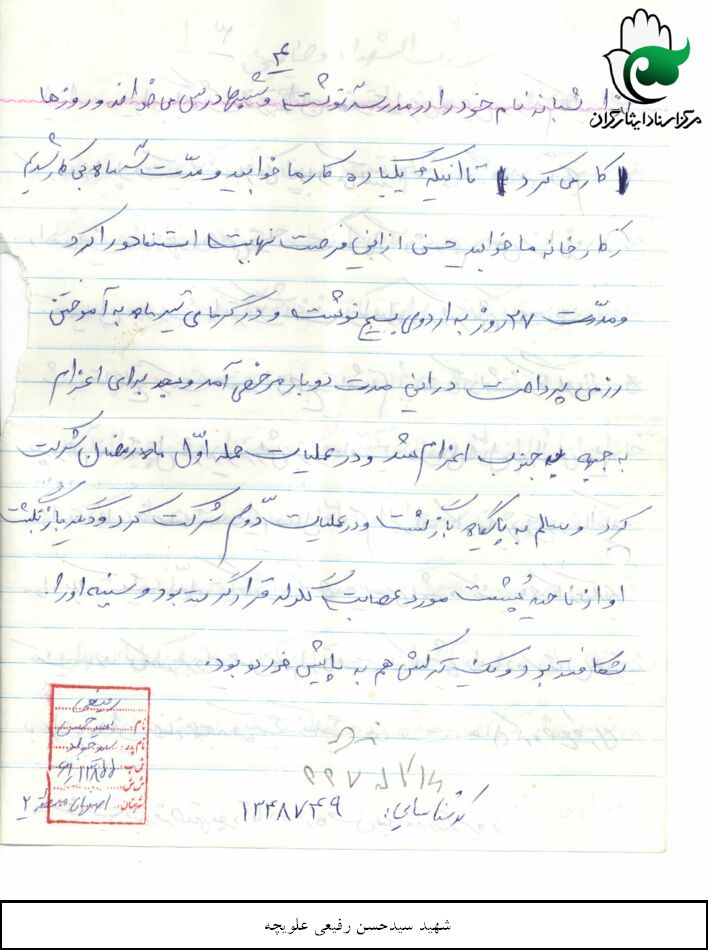 ۴
مرکز اسناد ایثارگران
لذا شبانه نام خود را در مدرسه نوشت و شبها درس می خواند و روزها
کار می کرد تا اینکه یکباره کار ما خوابید و مدّت سه ماه بی کار شدیم
کارخانه ما خوابید حسن از این فرصت نهایت استفاده را کرد
و مدّت ۲۷ روز به اردوی بسیج نوشت و در گرمای تیر ماه به آموختن
رزمی پرداخت در این مدت دو بار مرخصی آمد و بعد برای اعزام
به جبهه به جنوب اعزام شد و در عملیات حمله اوّل ماه رمضان شرکت
کرد و سالم به پایگاه بازگشت و در عملیات دوّم شرکت کرد و دیگر بازنگشت
او از ناحیه پشت مورد اصابت گلوله قرار گرفته بود و سینه او را
شکافته بود و یک ترکش هم به پایش خورده بود.
رفیعی
نام: سید حسن
نام پدر:
ش پ:
ش ش:
شهرستان: اصفهان منطقه ۲
کد شناسایی: ۱۳۴۸۷۴۹
شهید سیدحسن رفیعی علویچه